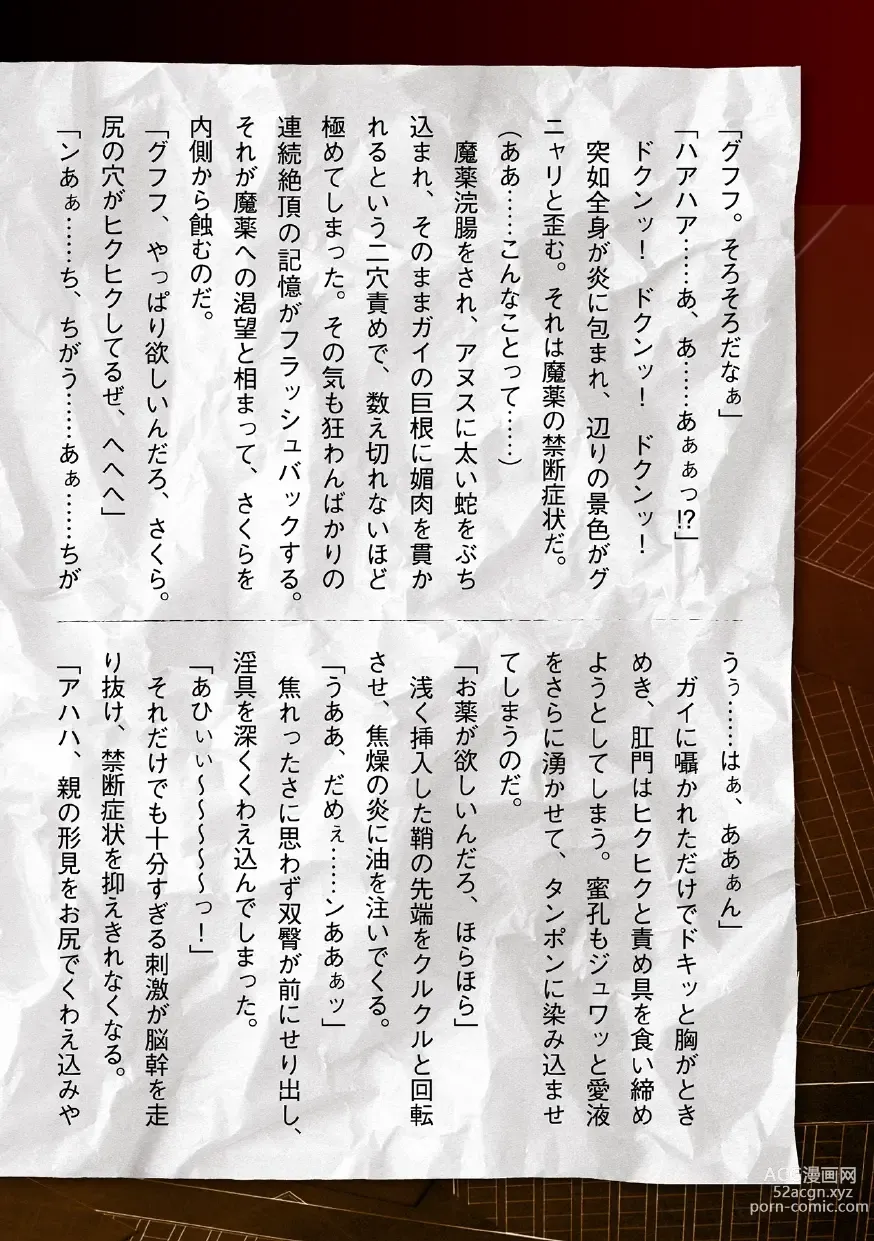 「グフフ。そろそろだなぁ」
「ハアハア……あ、あ……あぁぁっ!?」
ドクンッ！　ドクンッ！　ドクンッ！
突如全身が炎に包まれ、辺りの景色がグ
ニャリと歪む。それは魔薬の禁断症状だ。
（ああ……こんなことって……）
魔薬浣腸をされ、アヌスに太い蛇をぶち
込まれ、そのままガイの巨根に媚肉を貫か
れるという二穴責めで、数え切れないほど
極めてしまった。その気も狂わんばかりの
連続絶頂の記憶がフラッシュバックする。
それが魔薬への渇望と相まって、さくらを
内側から蝕むのだ。
「グフフ、やっぱり欲しいんだろ、さくら。
尻の穴がヒクヒクしてるぜ、へへへ」
「ンあぁ……ち、ちがう……あぁ……ちが
うぅ……はぁ、ああぁん」
ガイに囁かれただけでドキッと胸がとき
めき、肛門はヒクヒクと責め具を食い締め
ようとしてしまう。蜜孔もジュワッと愛液
をさらに湧かせて、タンポンに染み込ませ
てしまうのだ。
「お薬が欲しいんだろ、ほらほら」
浅く挿入した鞘の先端をクルクルと回転
させ、焦燥の炎に油を注いでくる。
「うああ、だめぇ……ンああぁッ」
焦れったさに思わず双臀が前にせり出し、
淫具を深くくわえ込んでしまった。
「あひぃぃ～～～～～っ！」
それだけでも十分すぎる刺激が脳幹を走
り抜け、禁断症状を抑えきれなくなる。
「アハハ、親の形見をお尻でくわえ込みや
ACG漫画网
52acgn.xyz
porn-comic.com